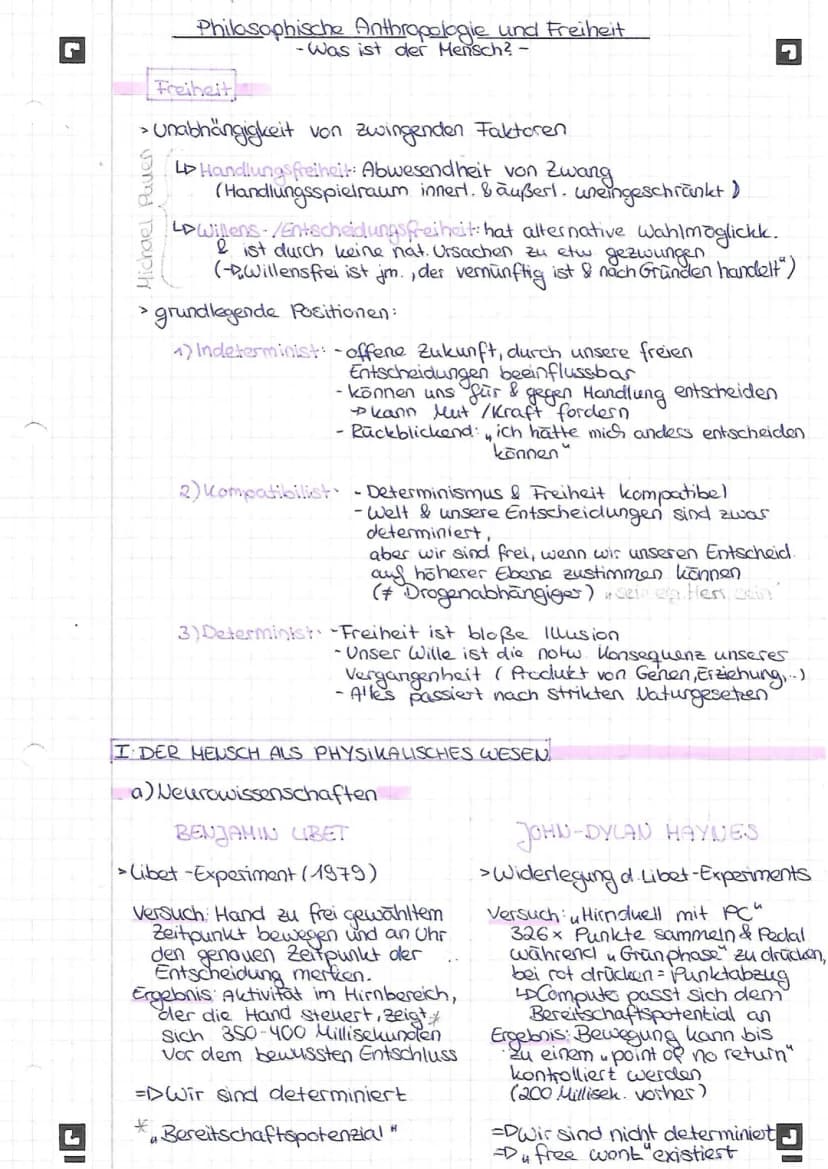 Philosophische Anthropologie und Freiheit
- Was ist der Mensch? -
Freiheit
> Unabhängigkeit von zwingenden Faktoren
Michael Pauen
↳ Handlungsfreiheit: Abwesendheit von Zwang
(Handlungsspielraum innerl. & äußerl. uneingeschränkt)
↳ Willens-/Entscheidungsfreiheit: hat alternative Wahlmöglichk.
& ist durch keine nat. Ursachen zu etw gezwungen
(→ „Willensfrei ist jm., der vernünftig ist & nach Gründen handelt“)
> grundlegende Positionen:
1) Indeterminist: - offene Zukunft, durch unsere freien
Entscheidungen beeinflussbar
- können uns für & gegen Handlung entscheiden
→ kann Mut / Kraft fordern
- Rückblickend: „ich hätte mich anders entscheiden
können“
2) Kompatibilist: - Determinismus & Freiheit kompatibel
- Welt & unsere Entscheidungen sind zwar
determiniert,
aber wir sind frei, wenn wir unseren Entscheid.
auf höherer Ebene zustimmen können
(≠ Drogenabhängiger) „sein eig. Herr sein“
3) Determinist: - Freiheit ist bloße Illusion
- Unser Wille ist die notw. Konsequenz unseres
Vergangenheit (Produkt von Genen, Erziehung,..)
- Alles passiert nach strikten Naturgesetzen
I. DER MENSCH ALS PHYSIKALISCHES WESEN
a) Neurowissenschaften
BENJAMIN LIBET
> Libet-Experiment (1979)
Versuch: Hand zu frei gewähltem
Zeitpunkt bewegen und an Uhr
den genauen Zeitpunkt der
Entscheidung merken.
Ergebnis: Aktivität im Hirnbereich,
der die Hand steuert, zeigt *
sich 350-400 Millisekunden
vor dem bewussten Entschluss
=> Wir sind determiniert
* „Bereitschaftspotenzial“
JOHN-DYLAN HAYNES
> Widerlegung d. Libet-Experiments
Versuch: „Hirnduell mit PC“
326x Punkte sammeln & Pedal
während „Grünphase“ zu drücken,
bei rot drücken = Punktabzug
↳ Compute passt sich dem
Bereitschaftspotential an
Ergebnis: Bewegung kann bis
zu einem „point of no return“
kontrolliert werden
(200 Millisek. vorher)
=> Wir sind nicht determiniert
=> „free wont“ existiert